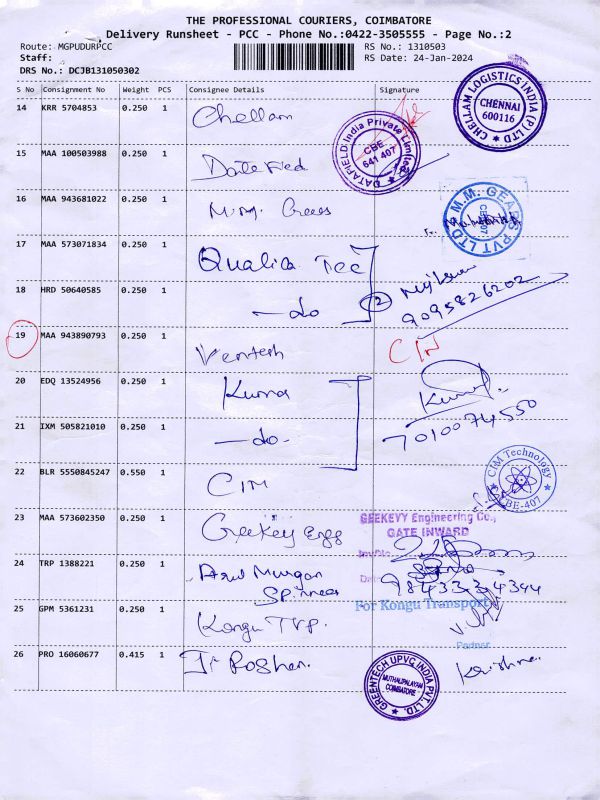 THE PROFESSIONAL COURIERS, COIMBATORE
Delivery Runsheet - PCC - Phone No.:0422-3505555 - Page No.:2
Route: MGPUDURPCC RS No.: 1310503
Staff: RS Date: 24-Jan-2024
DRS No.: DCJB131050302
S No Consignment No Weight PCS Consignee Details Signature
14 KRR 5704853 0.250 1 Chellam
CHELLAM LOGISTICS INDIA (P) LTD CHENNAI 600116
15 MAA 100503988 0.250 1 Datefied
DATAFIELD India Private Limited CBE 641 407
16 MAA 943681022 0.250 1 M.M. Gears
M.M. GEARS PVT LTD
17 MAA 573071834 0.250 1 Qualica Tec
18 HRD 50640585 0.250 1 -do 2
9095826202
19 MAA 943890793 0.250 1 Ventesh CIN
20 EDQ 13524956 0.250 1 Kuma
21 IXM 505821010 0.250 1 -do-
7010074550
22 BLR 5550845247 0.550 1 CIM
CIM Technology CBE-407
23 MAA 573602350 0.250 1 Geekey Engg
GEEKEYY Engineering Co.,
GATE INWARD
24 TRP 1388221 0.250 1 Arul Murgan
Spinnees
9843334344
25 GPM 5361231 0.250 1 Kongu Trp.
For Kongu Transports
Partner
26 PRO 16060677 0.415 1 Ji Roshan.
GREENTECH UPVC INDIA PVT. LTD. MUTHALIPALAYAM COIMBATORE
Krishna